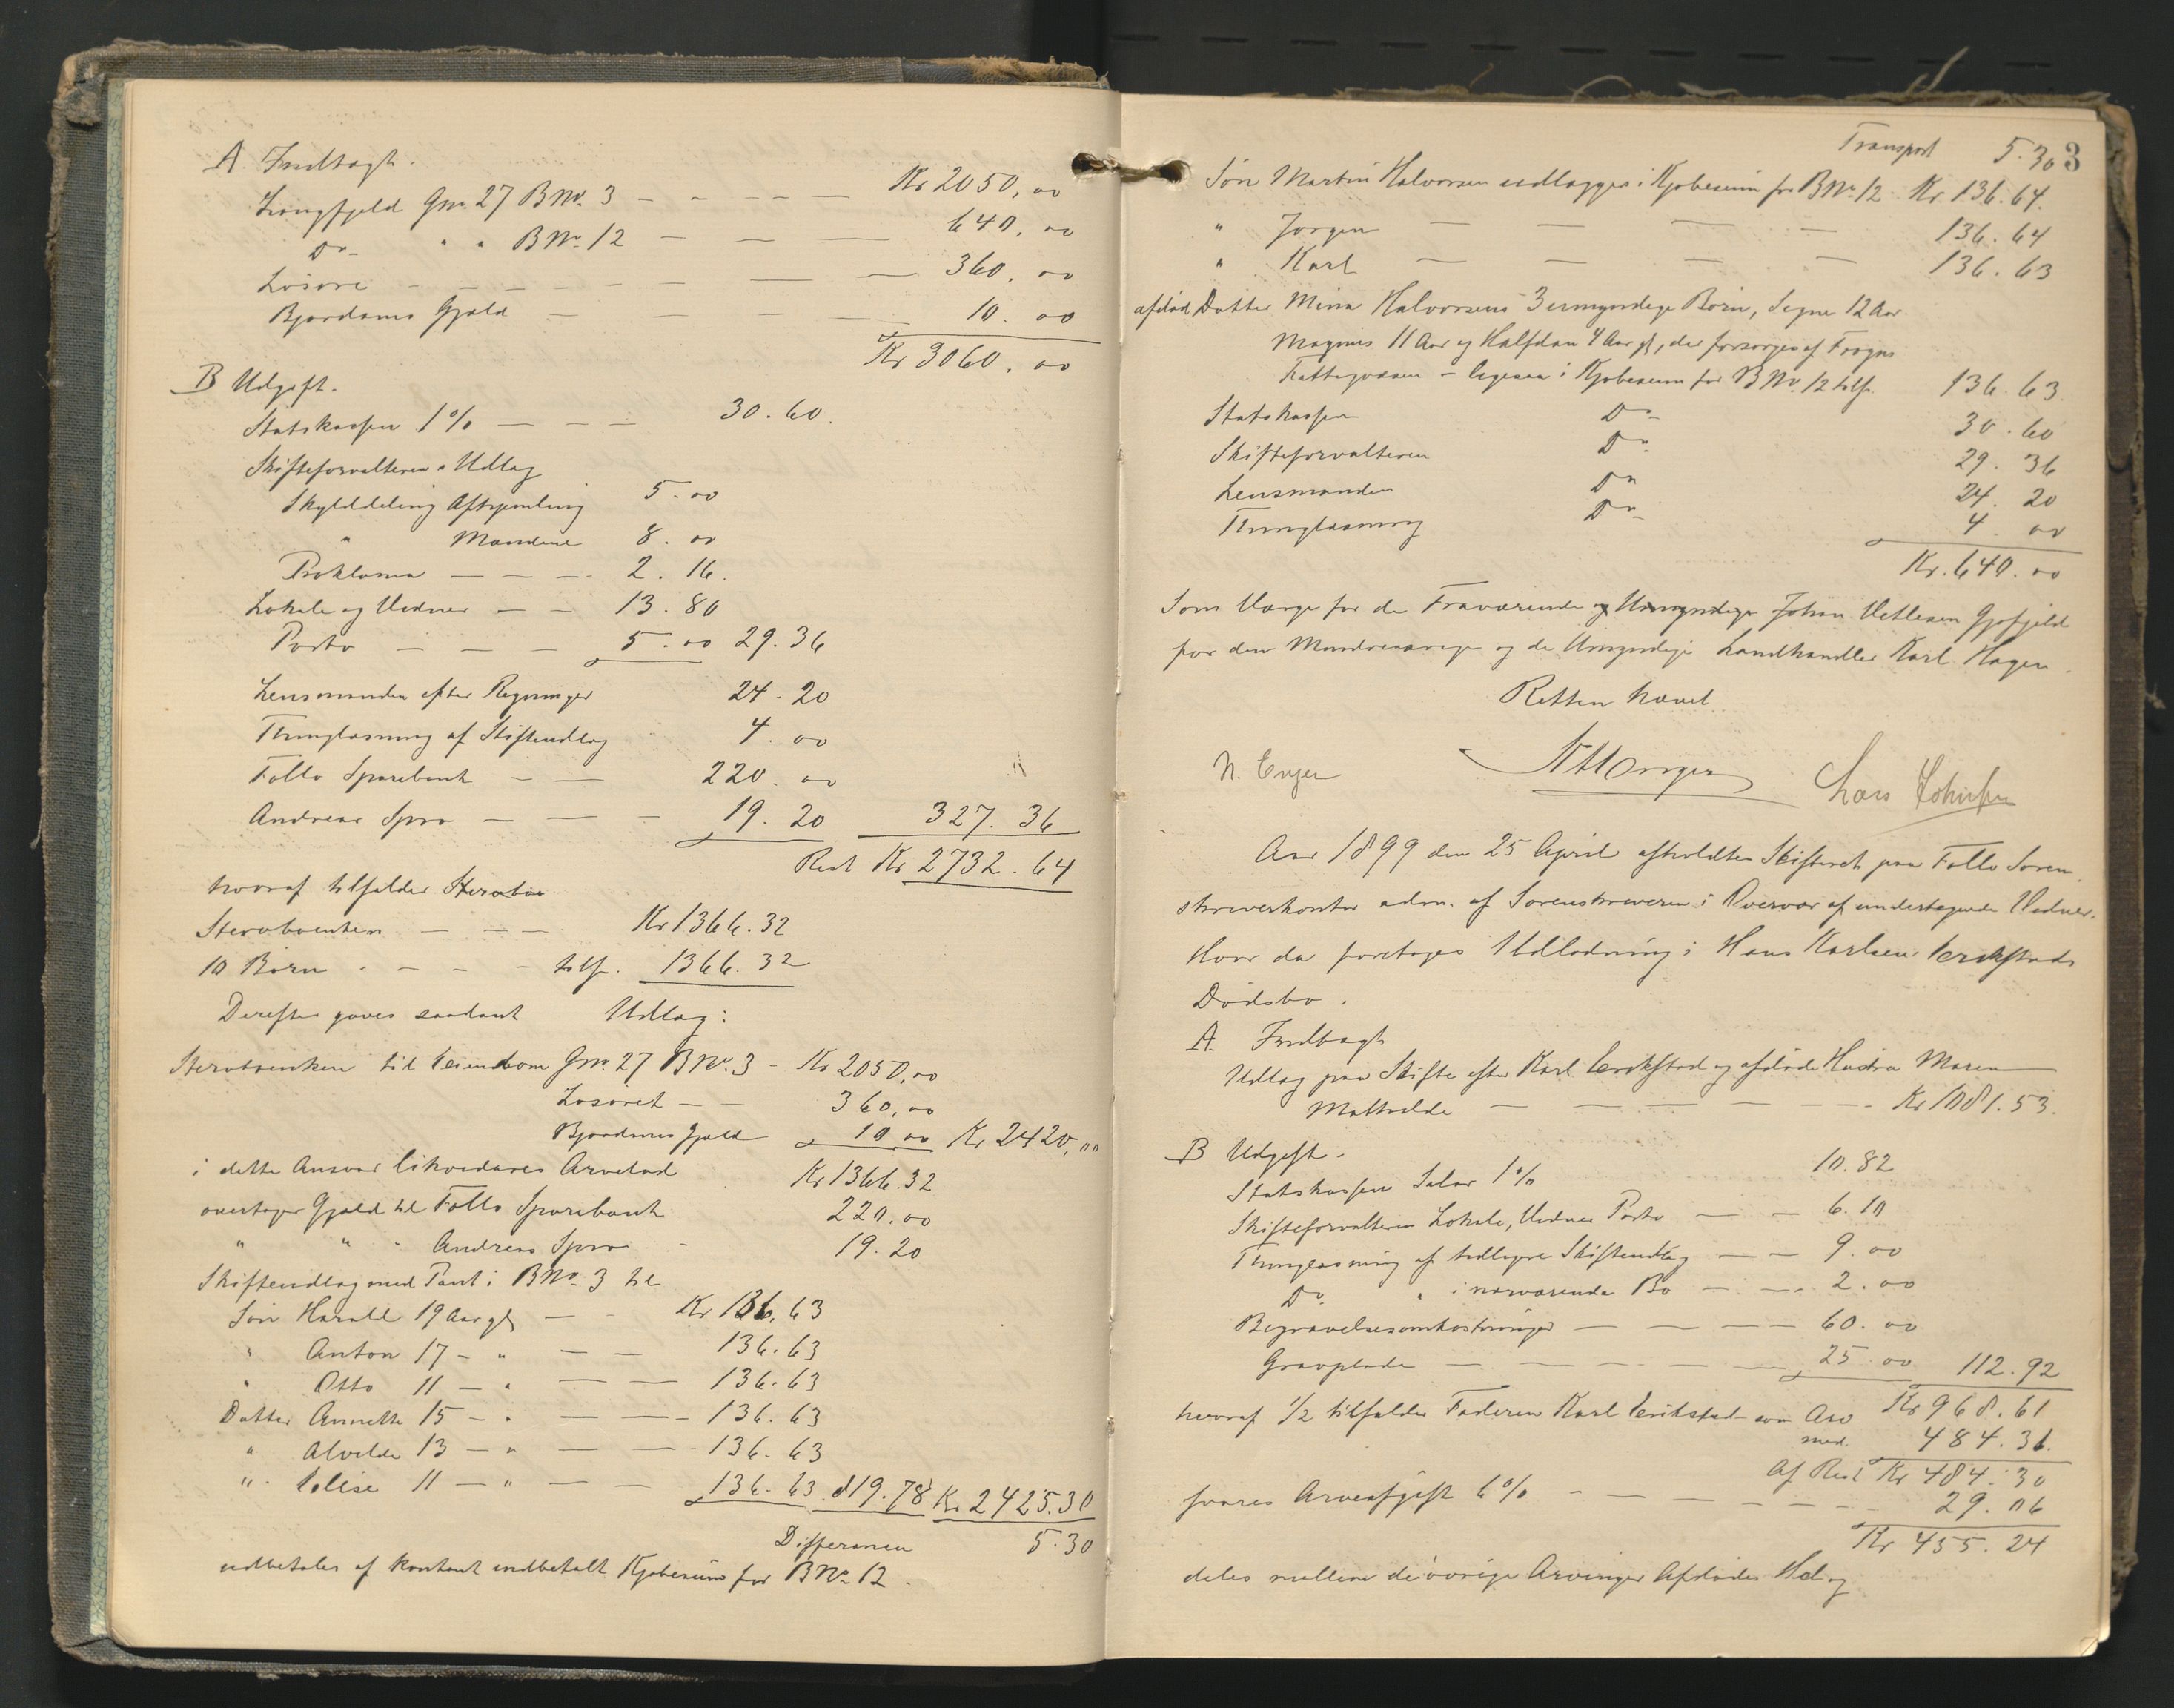 A Indtægt.
Gno. 27 BNo. 3 — - - — — Kr 2050,00
Do " " BNo. 12 — — — 640,00
Løsøre - - — — — — — 360,00
Gjæld — — — — 10.00
Kr 3060.00
B Udgift.
Statskassen 1% — — — 30.60.
Skifteforvalterens Udlæg
Skylddeling 5.00
" Mændene 8.00
Proklama — — — 2.16.
Lokale og Vidner — — 13.80
Porto — — — 5.00 29.36
Lensmanden efter Regninger 24.20
Thinglæsning af Skifteudlæg 4.00
Follo Sparebank — — 220.00
Andreas Spro — — — 19.20 327.36
Rest Kr 2732.64
hvoraf tilfalder
Stervboenken — — — Kr 1366.32
10 Børn - — — - tilf. 1366.32
Derefter gaves saadant Udlæg:
Stervboenken til Eiendom Gno. 27 BNo. 3 - Kr 2050,00
Løsøret — — 360,00
Gjæld 10 00 Kr 2420,00
i dette Ansvar likviderer Arvelod Kr 1366.32
overtager Gjæld til Follo Sparebank 220.00
" " " Andreas Spro - 19.20
Skifteudlæg med Pant i BNo. 3 til
Søn Harald 19 Aar gl — - Kr 136,63
" Anton 17 - " — — 136.63
" Otto 11 — " — — 136.63
Datter Annette 15 — " — — 136.63
" Alvilde 13 — " — — 136.63
" Elise 11 — " — — 136.63 819.78 Kr 2425.30
Differencen 5.30
udbetales af kontant indbetalt Kjøbesum for BNo. 12.
3
Transport 5.30
Søn Martin Halvorsen udlægges i Kjøbesum for BNo. 12 Kr. 136.64.
" Jørgen — — — — 136.64
" Karl — — — — 136.63
afdød Datter Mina Halvorsens 3 umyndige Børn, Signe 12 Aar
Magnus 11 Aar og Halfdan 4 Aar gl, der forsørges af Frogns
Fattigvæsen - ligesaa i Kjøbesum for BNo. 12 tilf. 136.63
Statskassen Do 30.60
Skifteforvalteren Do 29.36
Lensmanden Do 24.20
Thinglæsning Do 4 00
Kr. 640.00
Som Værge for de Fraværende Johan Vetlesen
for den Mindreaarige og de Umyndige Landhandler Karl Hagen.
Retten hævet
N. Enger Lars Johnsen
Aar 1899 den 25 April afholdtes Skifteret paa Follo Soren-
skriverkontor adm. af Sorenskriveren i Overvær af undertegnede Vidner.
Hvor da foretoges Udlodning i Hans Karlsen Erikstads
Dødsbo.
A. Indtægt
Udlæg paa Skifte efter Karl Erikstad og afdøde Hustru Maren
Mathilde — — — — - - Kr 1081.53.
B Udgift.
Statskassen Salær 1% 10.82
Skifteforvalteren Lokale, Vidner Porto — — 6.10
Thinglæsning af tidligere Skifteudlæg — — 9.00
Do " i nærværende Bo — — 2.00
Begravelsesomkostninger — — — — 60.00
Gravplads — — — — — 25.00 112.92
Kr 968.61
hvoraf 1/2 tilfalder Faderen Karl Erikstad som Arv
med. 484.31.
Af Rest Kr 484.30
svares Arveafgift 6% - — — — — - - 29.06
Kr 455.24
deles mellem de øvrige Arvinger Afdødes Hel og